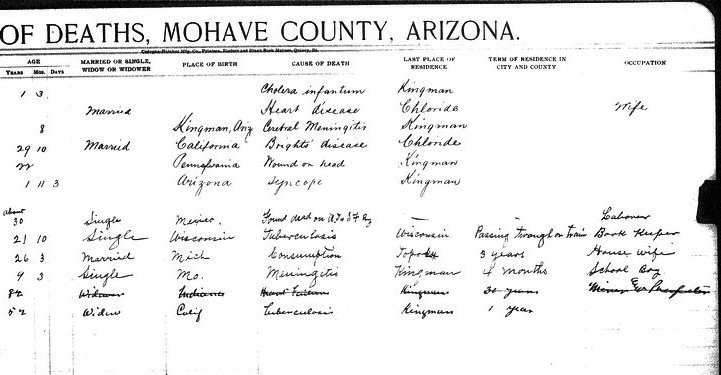 OF DEATHS, MOHAVE COUNTY, ARIZONA.
AGE MARRIED OR SINGLE, WIDOW OR WIDOWER PLACE OF BIRTH CAUSE OF DEATH LAST PLACE OF RESIDENCE TERM OF RESIDENCE IN CITY AND COUNTY OCCUPATION
YEARS MOS. DAYS
1 3 Cholera infantum Kingman
Married Heart disease Chloride Wife
8 Kingman, Ariz Cerebral Meningitis Kingman
29 10 Married California Brights disease Chloride
22 Pennsylvania Wound on head Kingman
1 11 3 Arizona Syncope Kingman
about 30 Single Mexico. Found dead on — — Laborer
21 10 Single Wisconsin Tuberculosis Wisconsin Passing through on train Book Keeper
26 3 Married Mich Consumption 3 years House wife
9 3 Single Mo. Meningitis Kingman 4 months School Boy
82 Widower Indiana Heart Failure Kingman 30 years Miner &
52 Widow Calif Tuberculosis Kingman 1 year